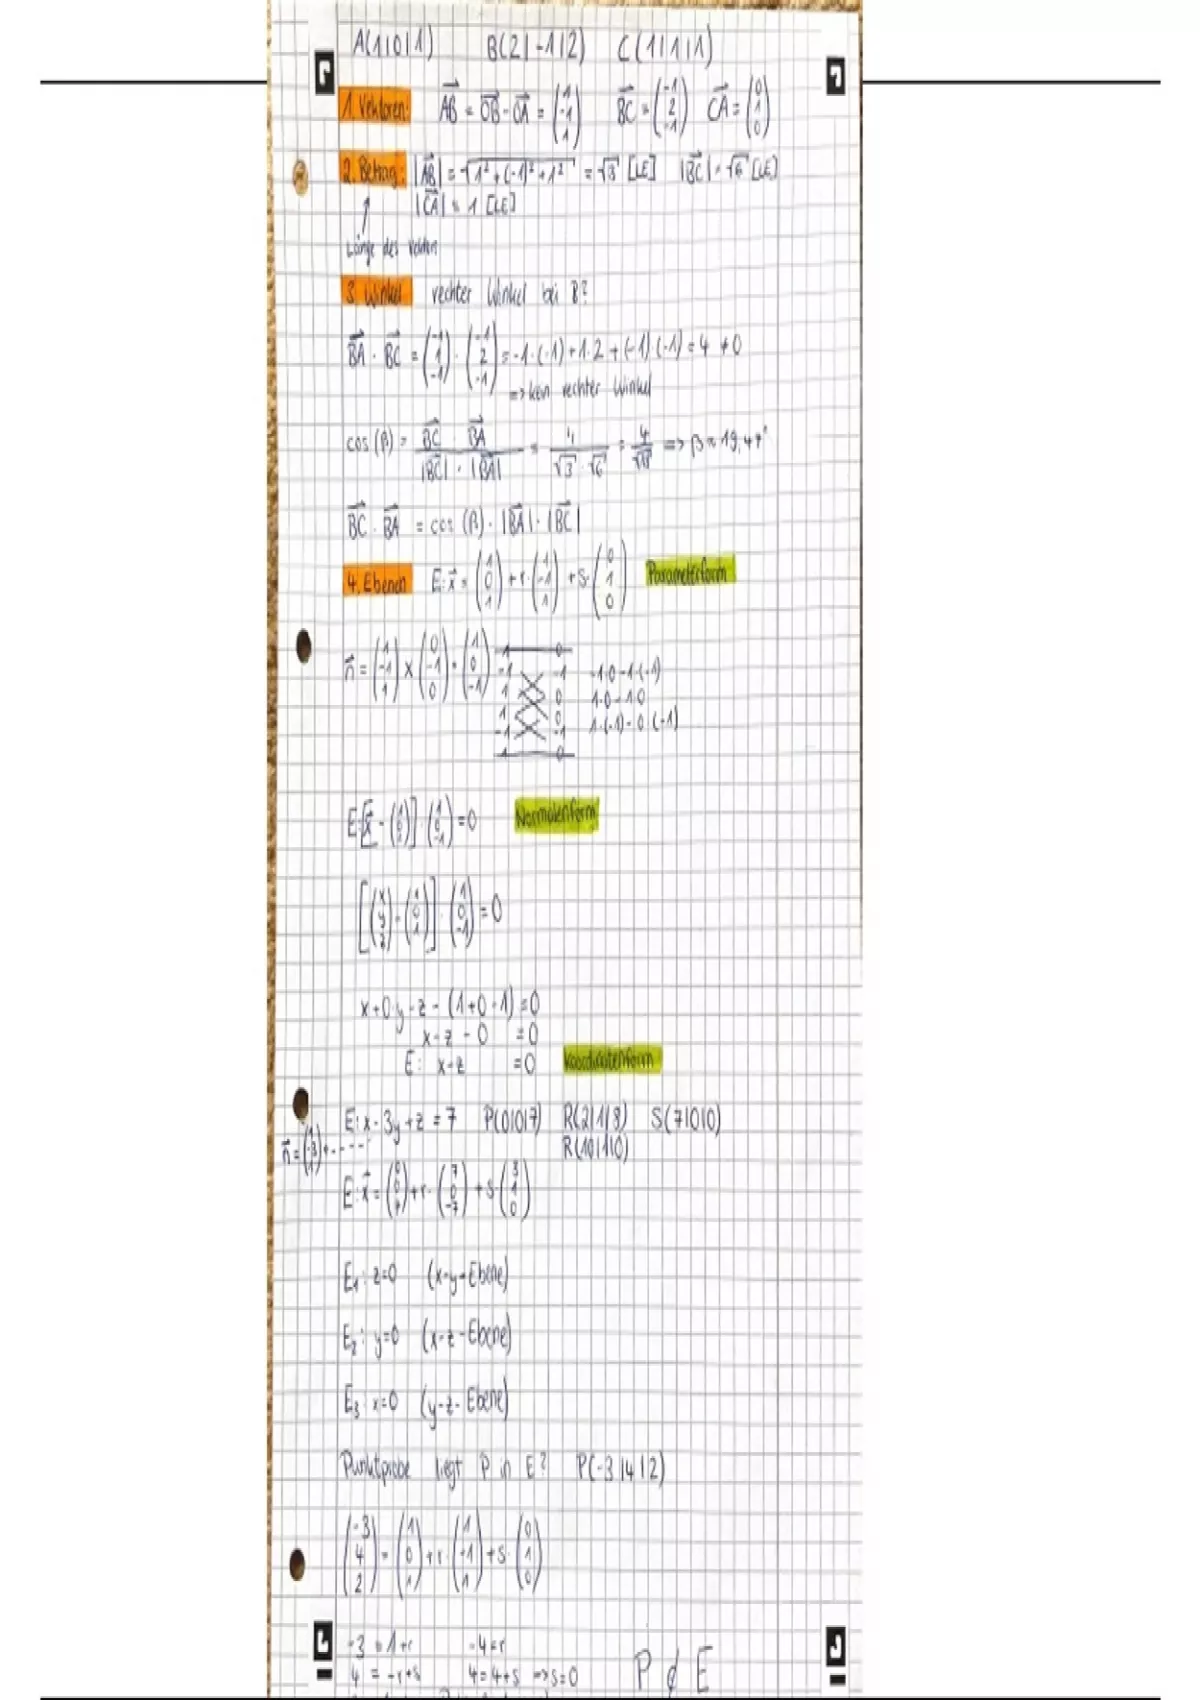 A(1|0|1) B(2|-1|2) C(1|1|1)
1. Vektoren: AB⃗ = OB⃗ - OA⃗ = (1 -1 1) BC⃗ = (-1 2 -1) CA⃗ = (0 1 0)
2. Betrag: |AB⃗| = √(1² + (-1)² + 1²) = √3 [LE] |BC⃗| = √6 [LE]
|CA⃗| = 1 [LE]
Länge des
3. Winkel rechter Winkel bei B?
BA⃗ · BC⃗ = (-1 1 -1) · (-1 2 -1) = -1·(-1) + 1·2 + (-1)·(-1) = 4 ≠ 0
=> kein rechter Winkel
cos(β) = (BC⃗ · BA⃗)/(|BC⃗| · |BA⃗|) = 4/(√3 · √6) = 4/√18 => β ≈ 19,47°
BC⃗ · BA⃗ = cos(β) · |BA⃗| · |BC⃗|
4. Ebenen E: x⃗ = (1 0 1) + r · (1 -1 1) + s · (0 1 0) Parameterform
n⃗ = (1 -1 1) × (0 -1 0) = (1 0 -1)
1 0
-1 -1 -1·0-1·(-1)
1 0 1·0-1·0
1 0 1·(-1)-0·(-1)
-1 -1
1 0
E: [x⃗ - (1 0 1)] · (1 0 -1) = 0 Normalenform
[(x y z) - (1 0 1)] · (1 0 -1) = 0
x+0·y-z-(1+0-1)=0
x-z-0 =0
E: x-z =0 Koordinatenform
E: x-3y+z=7 P(0|0|7) R(2|1|8) S(7|0|0)
R(10|1|0)
n⃗ = (1 -3 1)
E: x⃗ = (0 0 7) + r · (7 0 -7) + s · (3 1 0)
E₁: z=0 (x-y-Ebene)
E₂: y=0 (x-z-Ebene)
E₃: x=0 (y-z-Ebene)
Punktprobe liegt P in E? P(-3|4|2)
(-3 4 2) = (1 0 1) + r · (1 -1 1) + s · (0 1 0)
-3 = 1+r -4=r
4 = -r+s 4=4+s => s=0 P ∉ E